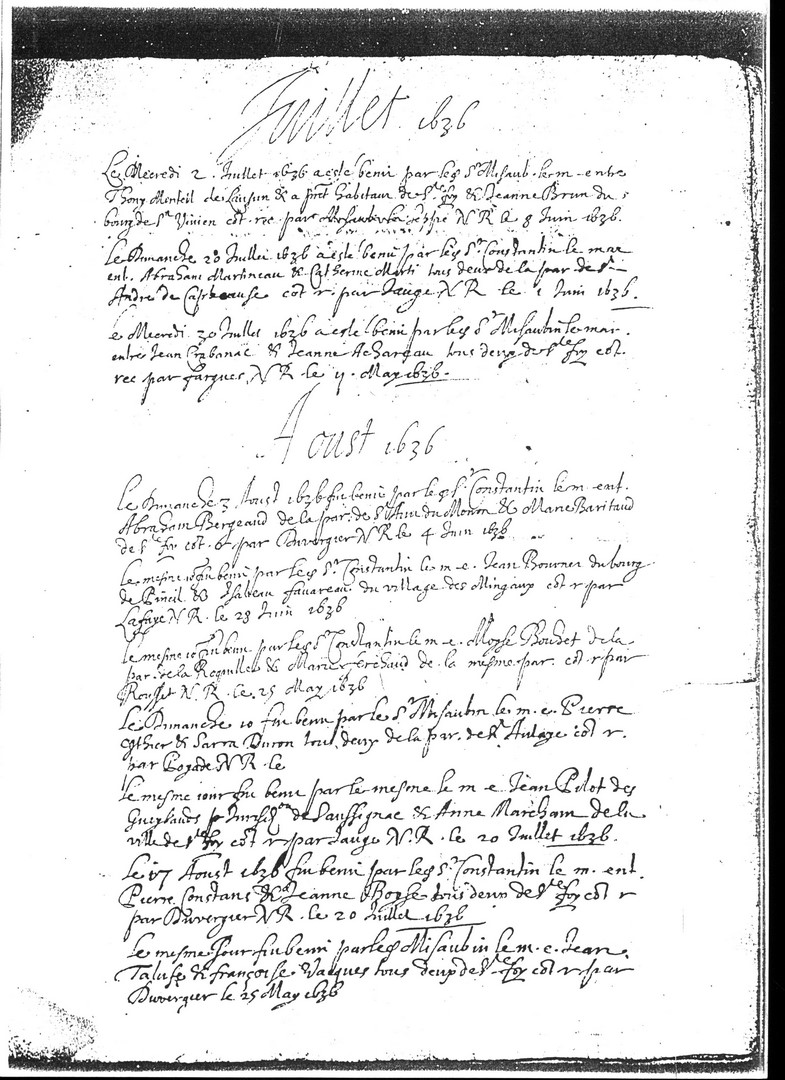 Juillet 1636
Le Mecredi 2 Juillet 1636 a esté beni par led Sr Misaub. le m. entre
Thony Monteil de & a pnt habitan de Ste foy & Jeanne Brun du
bourg de St Vivien cot. rec par N R le 8 Juin 1636.
Le Dimanche 20 Juillet 1636 a esté beni par led Sr Constantin le mar
ent. Abraham Martineau & Catherine Marti tous deux de la par de St
André de cot r. par Jauge, N R le 1 Juin 1636.
e Mecredi 30 Juillet 1636 a esté beni par led Sr Misaubin le mar.
entre Jean Cabanac & Jeanne Achareau tous deux de Ste foy cot.
rec par fargues, N R le 11 May 1636.
Aoust 1636
Le Dimanche 3 Aoust 1636 fut beni par led Sr Constantin le m. ent.
Abraham Bergeaud de la par. de St du & Marie Baritaud
de Ste foy cot. & par Duvergier N R le 4 Juin 1636
Le mesme io. fut beni par led Sr Constantin le m e. Jean Bournet du bourg
de Pineil & Isabeau favareau du village des Mingaux cot r par
Lafaye N R. le 23 Juin 1636
Le mesme io fut beni par led Sr Constantin le m e. Moyse Boudet de la
par. de la Roquille & Marie de la mesme par. cot. r par
Rousset N. R. le 25 May 1636
Le Dimanche 10 fut beni par le Sr Misaubin le m. e. Pierre
& Sarra Duron tous deux de la par. de St Aulaye cot r.
par N R. le
Le mesme iour fut beni par le mesme le m e Jean Pilot des
Jurisd.on de Saussignac & Anne Marcham de la
ville de Ste foy cot r par Jauge N. R. le 20 Juillet 1636.
Le 17 Aoust 1636 fut beni par led Sr Constantin le m. ent.
Pierre Constans & Jeanne Boyse tous deux de Ste foy cot r
par Duvergier N R. le 20 Juillet 1636
Le mesme Jour fut beni par led Misaubin le m. e. Jean
& françoise Vacques tous deux de Ste foy cot r par
Duvergier le 25 May 1636